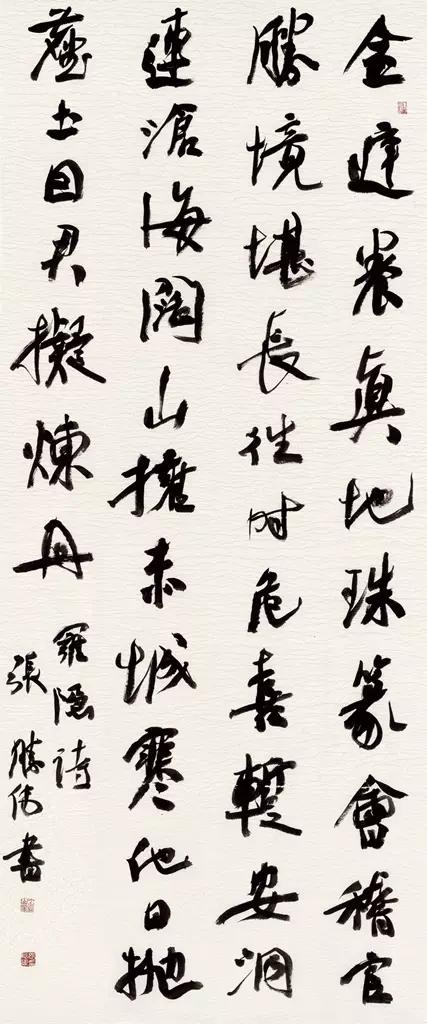 金庭養真地珠篆會稽官
勝境堪長往时危喜暫安洞
連滄海闊山擁赤城寒他日抛
塵土因君擬煉丹
羅隱詩
張勝伟書